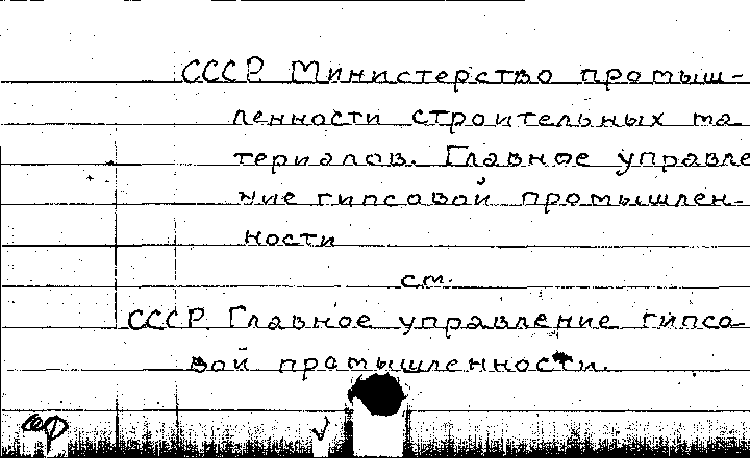 СССР. Министерство промыш-
ленности строительных ма-
териалов. Главное управле
ние гипсовой промышлен-
ности
см.
СССР. Главное управление гипсо-
вой промышленности.